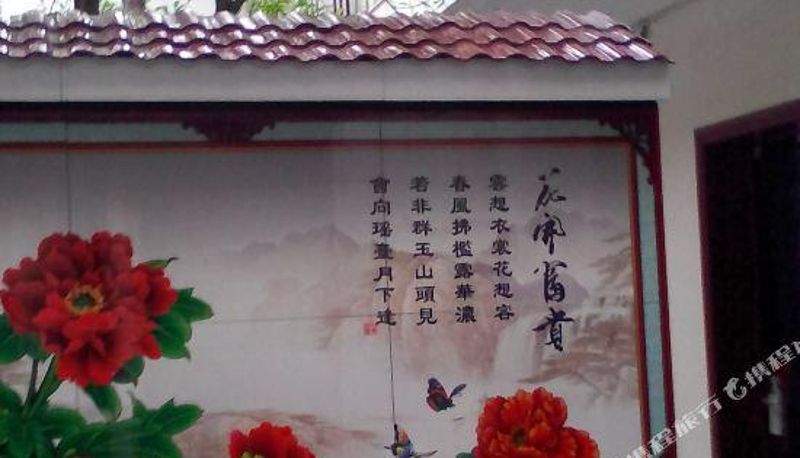 花開富貴
雲想衣裳花想容
春風拂檻露華濃
若非群玉山頭見
會向瑤臺月下逢
携程旅行
携程